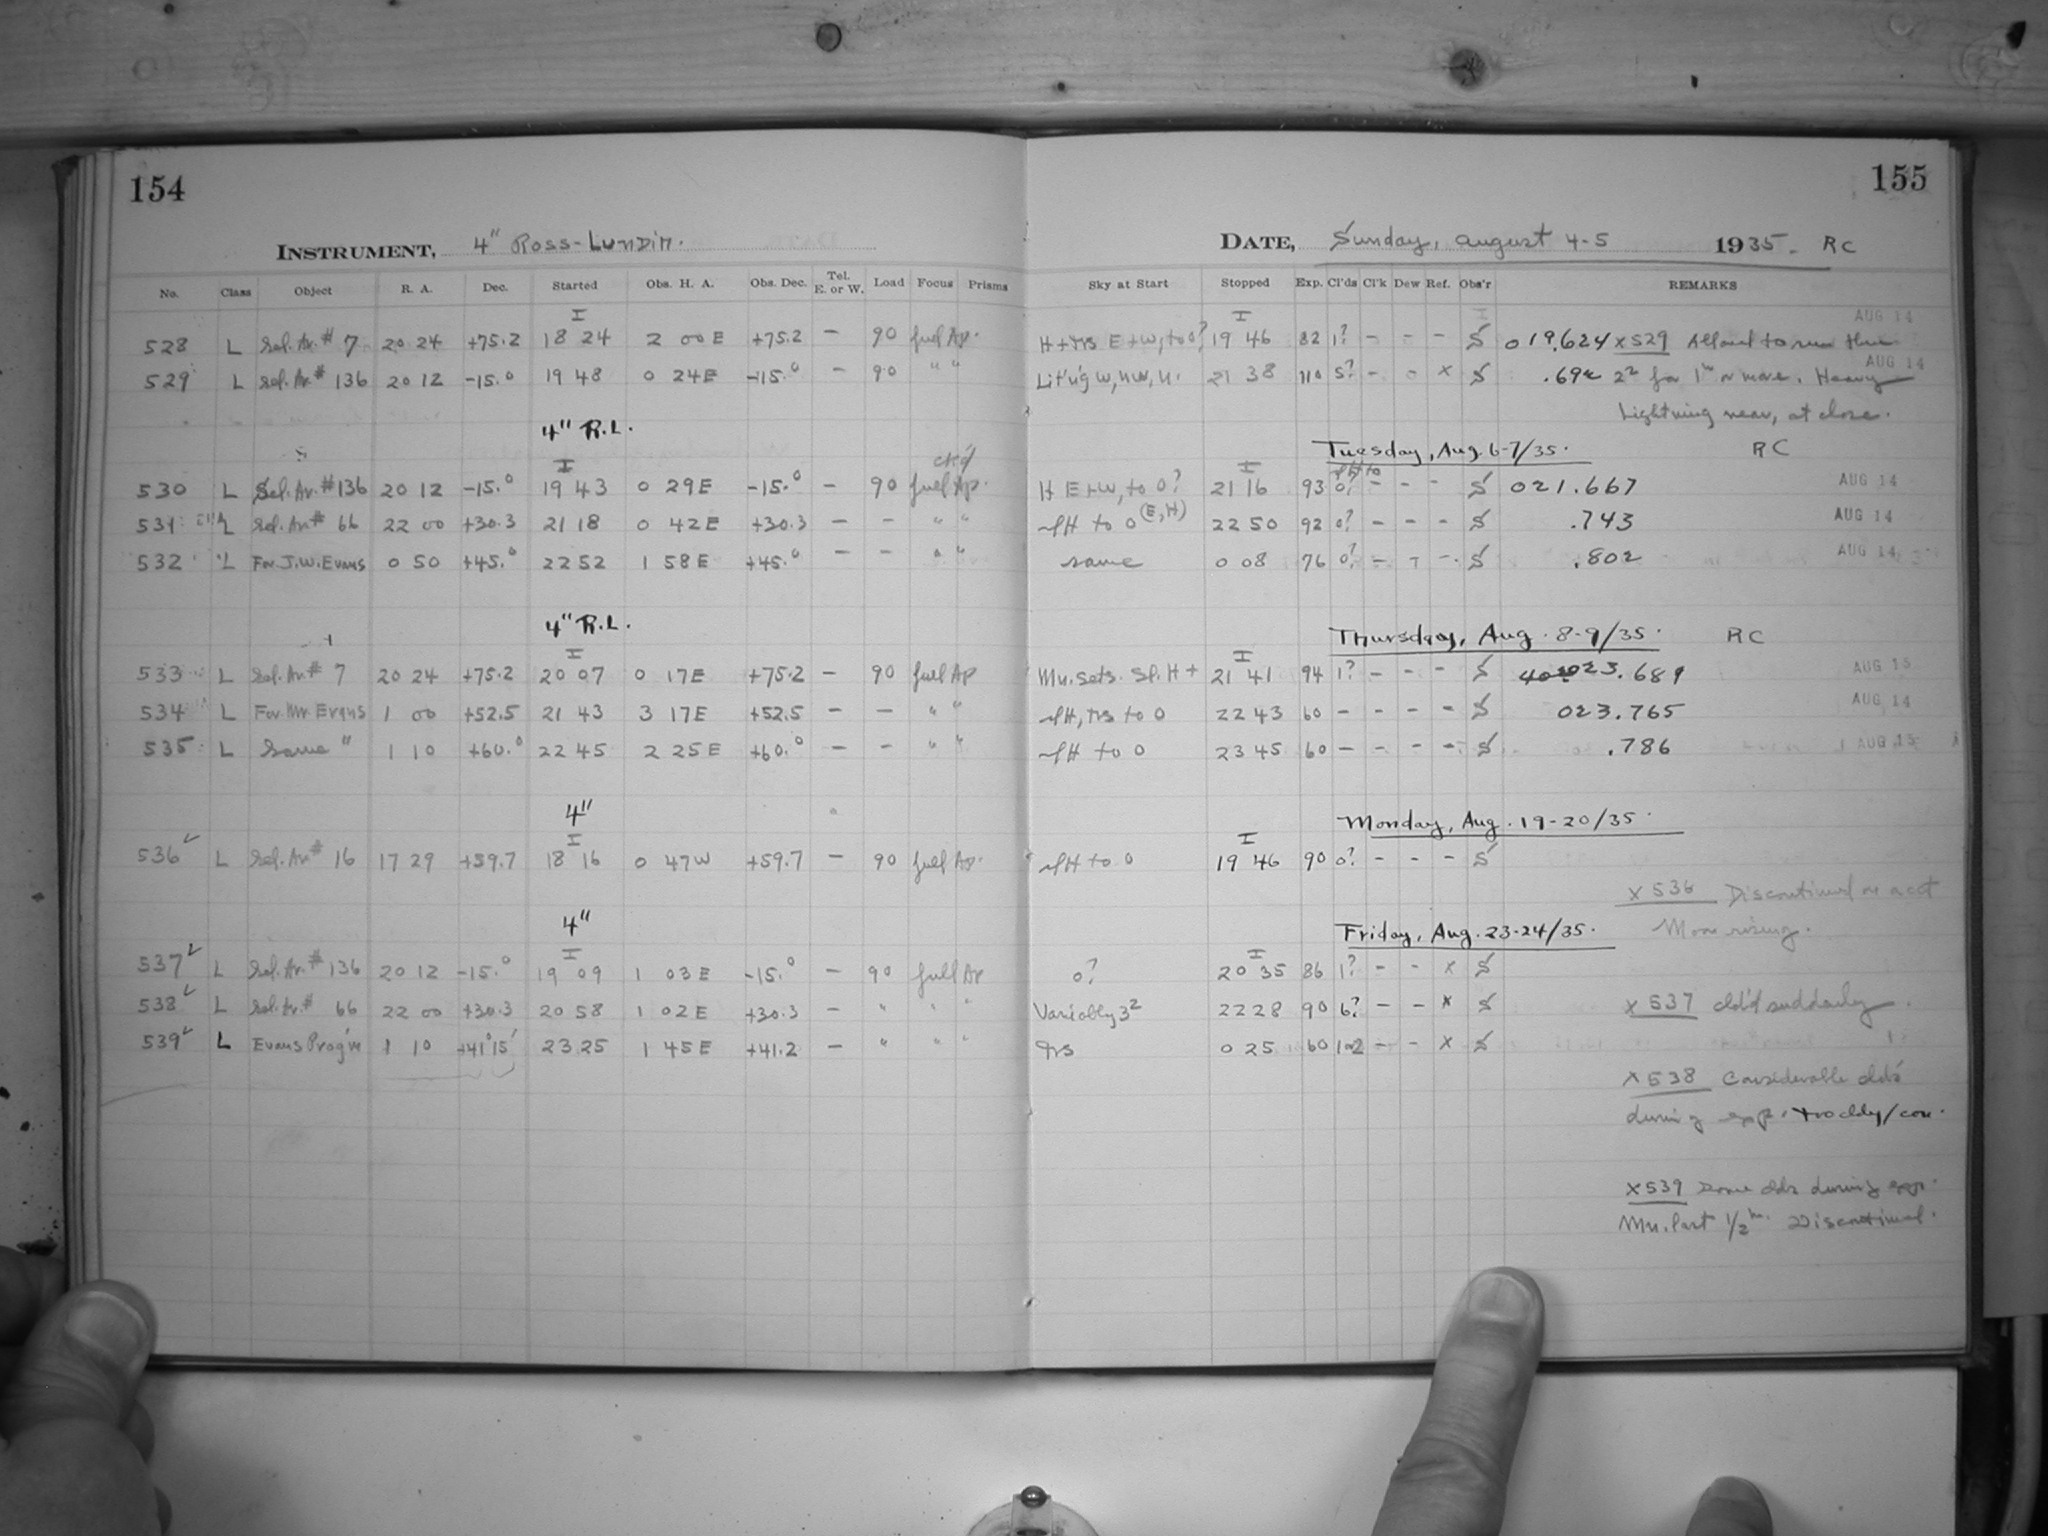 154
INSTRUMENT, 4" Ross-Lundin.
No. Class Object R. A. Dec. Started Obs. H. A. Obs. Dec. Tel. E. or W. Load Focus Prisms
I
528 L Sel. Ar. # 7 20 24 +75.2 18 24 2 00 E +75.2 – 90 full Ap.
529 L Sel. Ar. # 136 20 12 -15.0 19 48 0 24 E -15.0 – 90 " "
4" R.L.
I
530 L Sel. Ar. # 136 20 12 -15.0 19 43 0 29 E -15.0 – 90 full Ap.
531 L Sel. Ar. # 66 22 00 +30.3 21 18 0 42 E +30.3 – – " "
532 L For J.W. Evans 0 50 +45.0 22 52 1 58 E +45.0 – – " "
4" R.L.
I
533 L Sel. Ar. # 7 20 24 +75.2 20 07 0 17 E +75.2 – 90 full Ap
534 L For Mr Evans 1 00 +52.5 21 43 3 17 E +52.5 – – " "
535 L Same " 1 10 +60.0 22 45 2 25 E +60.0 – – " "
4"
I
536 L Sel. Ar. # 16 17 29 +59.7 18 16 0 47 W +59.7 – 90 full Ap.
4"
I
537 L Sel. Ar. # 136 20 12 -15.0 19 09 1 03 E -15.0 – 90 full Ap
538 L Sel. Ar. # 66 22 00 +30.3 20 58 1 02 E +30.3 – " " "
539 L Evans Prog'm 1 10 +41°15' 23 25 1 45 E +41.2 – " " "
155
DATE, Sunday, August 4-5 1935. RC
Sky at Start Stopped Exp. Cl'ds Cl'k Dew Ref. Obs'r REMARKS
I AUG 14
H + trs E + W, to 0? 19 46 82 1? – – – S 019.624 x529
AUG 14
Lit'n'g W, NW, N. 21 38 110 5? – 0 x S .692 2² for 1ʰ or more. Heavy
Lightning near, at close.
Tuesday, Aug. 6-7/35. RC
I
H E + W, to 0? 21 16 93 0? – – – S 021.667 AUG 14
to 0 (E, H) 22 50 92 0? – – – S .743 AUG 14
same 0 08 76 0? – – – S .802 AUG 14
Thursday, Aug. 8-9/35. RC
I
Mn. sets. Sl. H + 21 41 94 1? – – – S 023.689 AUG 15
trs to 0 22 43 60 – – – – S 023.765 AUG 14
to 0 23 45 60 – – – – S .786 AUG 15
Monday, Aug. 19-20/35.
I
to 0 19 46 90 0? – – – S
x 536 Discontinued on acct
Moon rising.
Friday, Aug. 23-24/35.
I
0? 20 35 86 1? – – x S
Variably 3² 22 28 90 6? – – x S
x 537 cld'd suddenly.
trs 0 25 60 1 or 2 – – x S
x 538 Considerable clds
during exp.
x539 Some clds during exp.
Mn. last 1/2 hr. Discontinued.